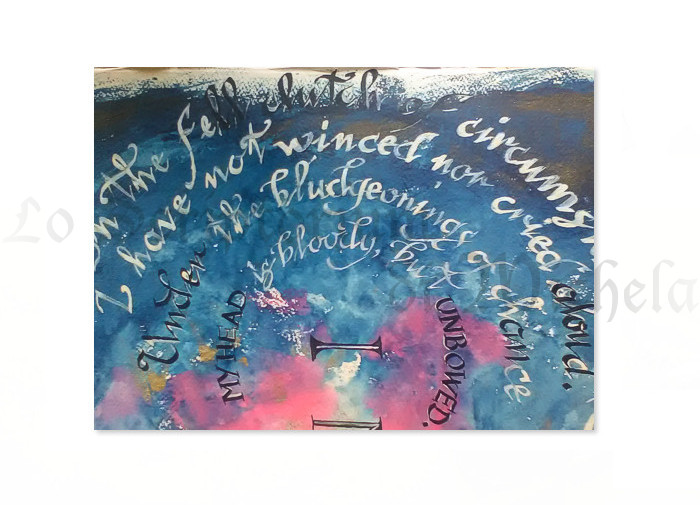 In the fell clutch of circums
I have not winced nor cried aloud.
Under the bludgeonings of chance
MY HEAD is bloody, but UNBOWED.
I
I